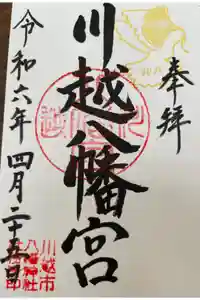 奉拝
川越八幡宮
令和六年四月二十五日
川越市
八幡神社